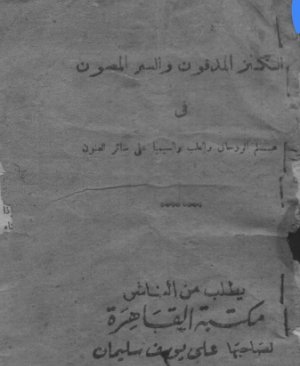 الكنز المدفون والسر المصون
فى
علم الروحانى والطب والسيميا على سائر الفنون
يطلب من الناشر
مكتبة القاهرة
لصاحبها على يوسف سليمان